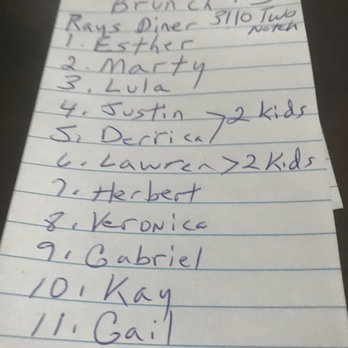 Brunch
Rays Diner 5110 Two
Notch
1. Esther
2. Marty
3. Lula
4. Justin > 2 kids
5. Derrica
6. Lawren > 2 Kids
7. Herbert
8. Veronica
9. Gabriel
10. Kay
11. Gail